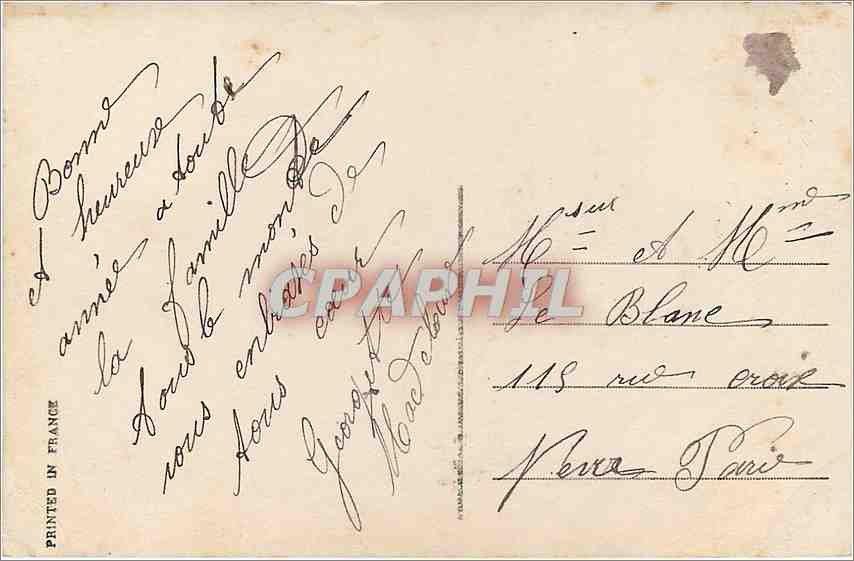 Bonne
et heureuse
année a toute
la famille
tous le monde
vous enbrases de
tous cœur
Georgette
Madelaine
PRINTED IN FRANCE
CPAPHIL
Msur et Mme
Le Blanc
115 rue croix
Nevers Paris